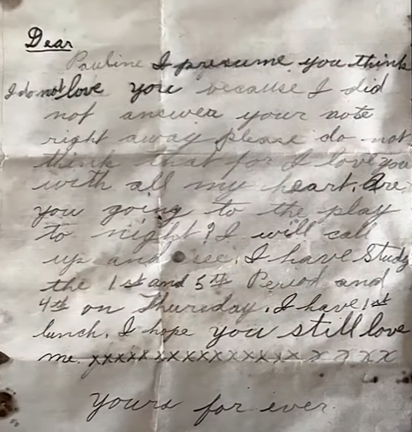 Dear
Pauline I presume you think
I do not love you because I did
not answer your note
right away please do not
think that for I love you
with all my heart. Are
you going to the play
to night? I will call
up and see. I have Study
the 1st and 5th Period and
4th on Thursday. I have 1st
lunch. I hope you still love
me. xxxxxxxxxxxxxxxxxxxx
Yours for ever.